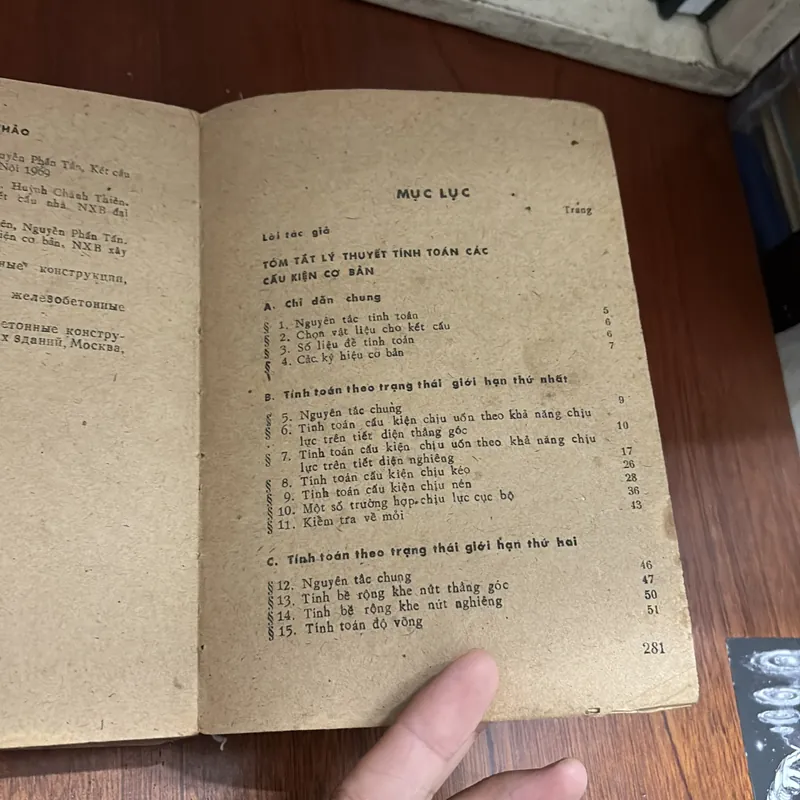 THẢO
Nguyễn Phấn Tấn, Kết cấu
Nội 1969
Huỳnh Chánh Thiên.
kết cấu nhà, NXB đại
Nguyễn Phấn Tấn.
kiện cơ bản, NXB xây
конструкция,
железобетонные
конструк-
зданий, Москва,
MỤC LỤC
Trang
Lời tác giả
TÓM TẮT LÝ THUYẾT TÍNH TOÁN CÁC
CẤU KIỆN CƠ BẢN
A. Chỉ dẫn chung
§ 1. Nguyên tắc tính toán 5
§ 2. Chọn vật liệu cho kết cấu 6
§ 3. Số liệu để tính toán 6
§ 4. Các ký hiệu cơ bản 7
B. Tính toán theo trạng thái giới hạn thứ nhất
§ 5. Nguyên tắc chung 9
§ 6. Tính toán cấu kiện chịu uốn theo khả năng chịu
lực trên tiết diện thẳng góc 10
§ 7. Tính toán cấu kiện chịu uốn theo khả năng chịu
lực trên tiết diện nghiêng 17
§ 8. Tính toán cấu kiện chịu kéo 26
§ 9. Tính toán cấu kiện chịu nén 28
§ 10. Một số trường hợp chịu lực cục bộ 36
§ 11. Kiểm tra về mỏi 43
C. Tính toán theo trạng thái giới hạn thứ hai
§ 12. Nguyên tắc chung 46
§ 13. Tính bề rộng khe nứt thẳng góc 47
§ 14. Tính bề rộng khe nứt nghiêng 50
§ 15. Tính toán độ võng 51
281